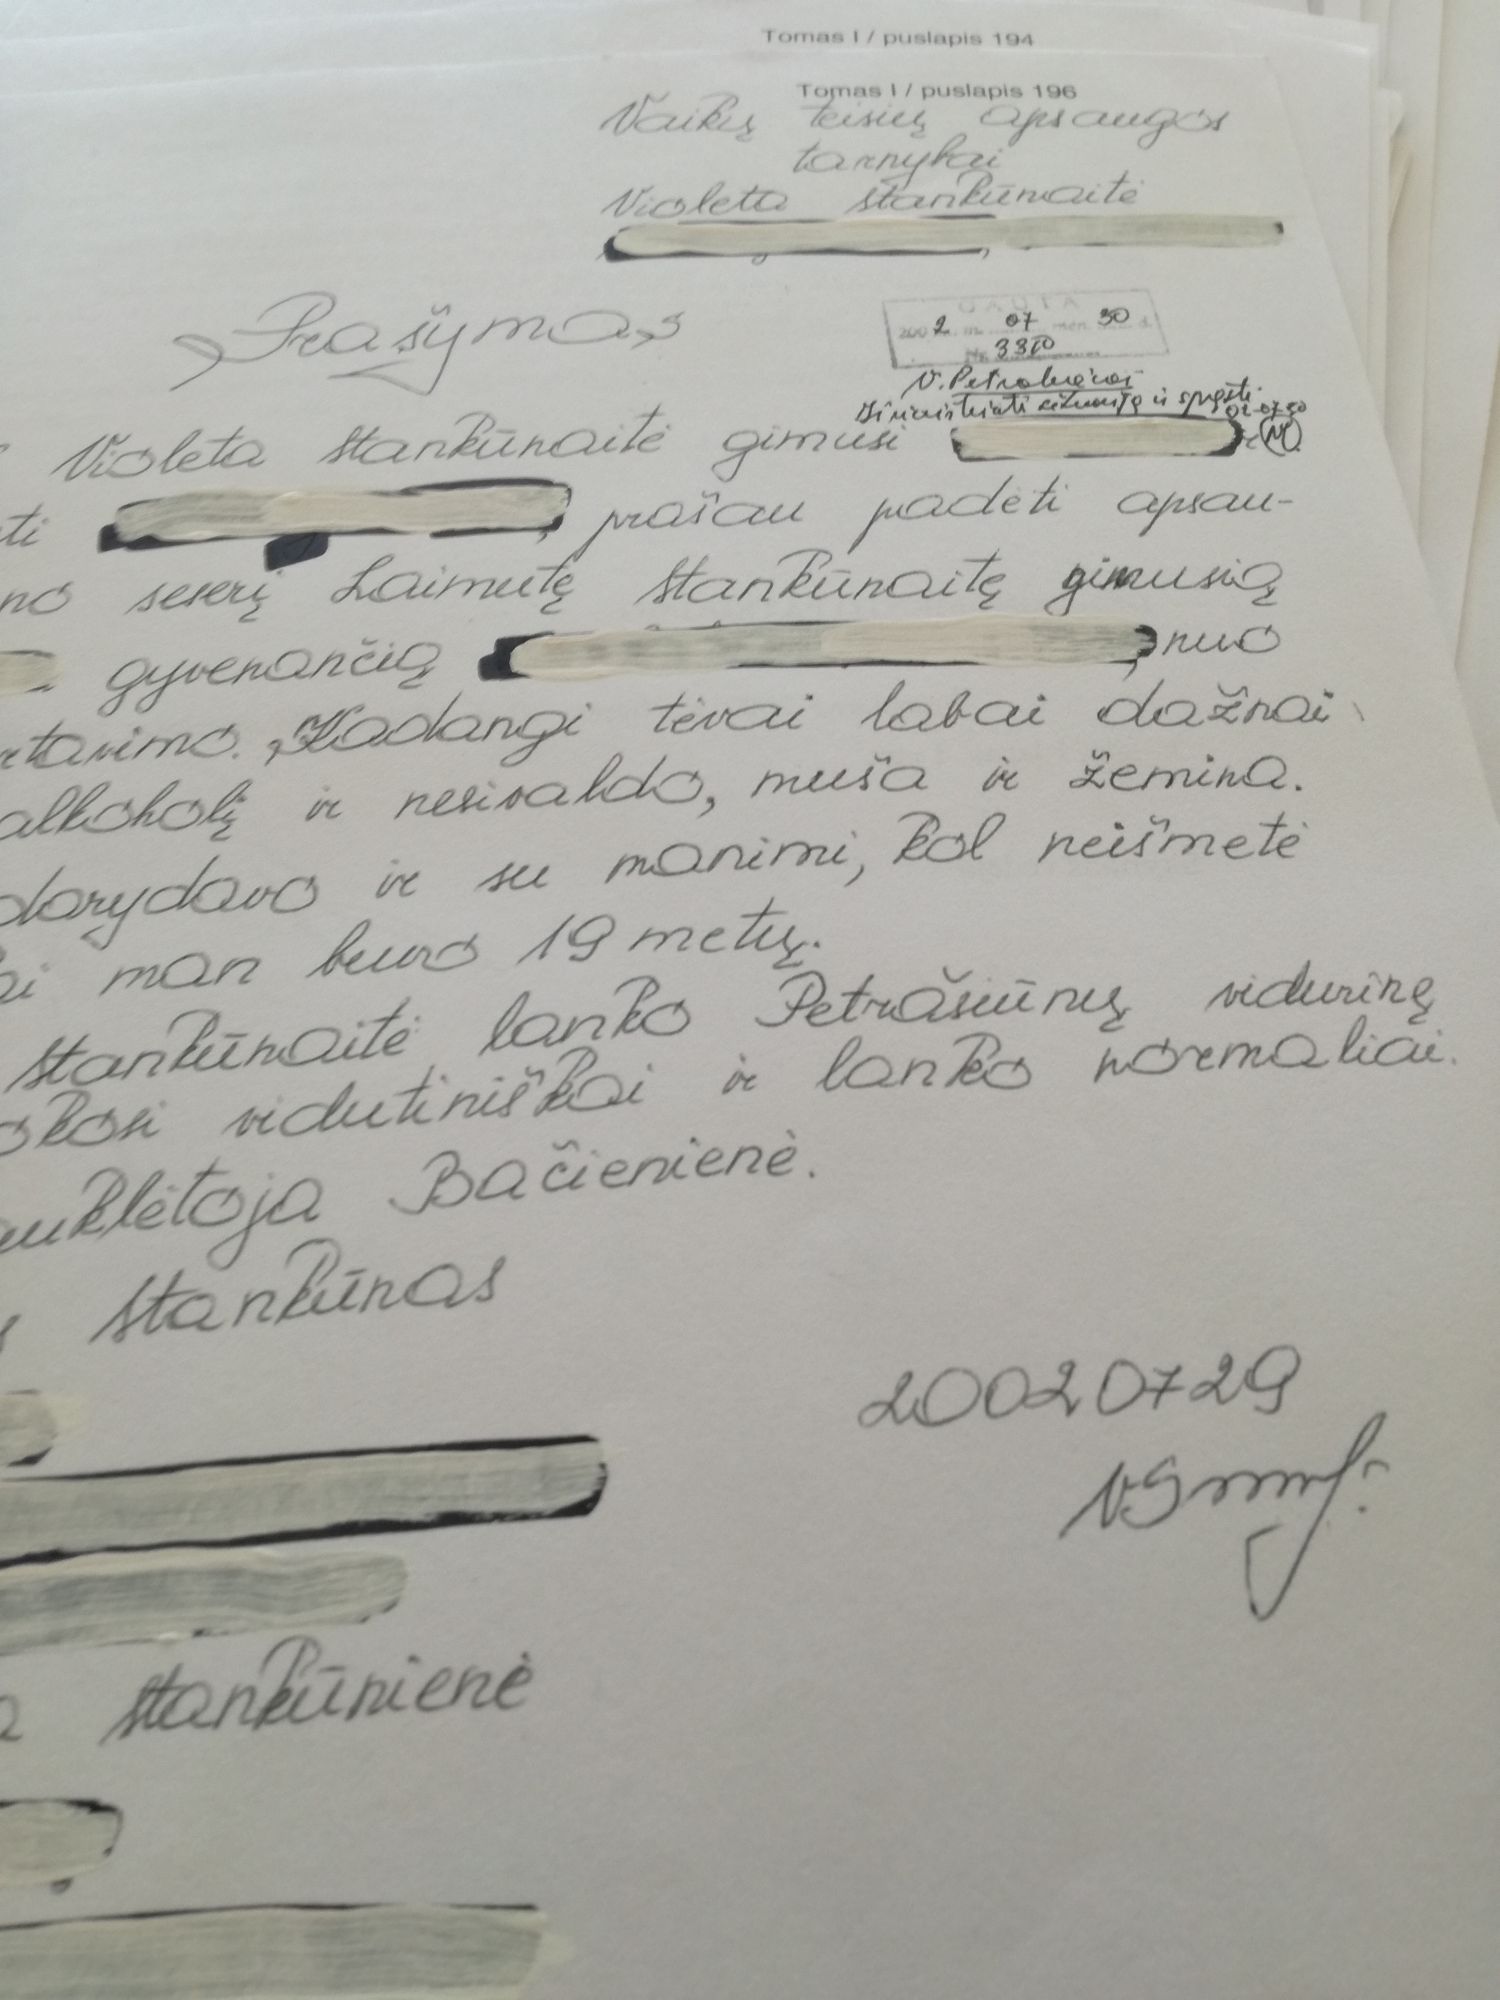 Tomas I / puslapis 194
Tomas I / puslapis 196
Vaikų teisių apsaugos
tarnybai
Violeta Stankūnaitė
Prašymas
GAUTA
2002 m. 07 mėn. 30 d.
Nr. 3380
ir spręsti
02-07-30
Violeta Stankūnaitė gimusi
ti prašau padėti apsau-
no seserį Laimutę Stankūnaitę gimusią
gyvenančią nuo
tavimo. Kadangi tėvai labai dažnai
alkoholį ir nesivaldo, muša ir žemina.
darydavo ir su manimi, kol neišmetė
ai man buvo 19 metų.
Stankūnaitė lanko Petrašiūnų vidurinę
okosi vidutiniškai ir lanko normaliai.
uklėtoja Bačienienė.
s Stankūnas
20020729
a Stankūnienė